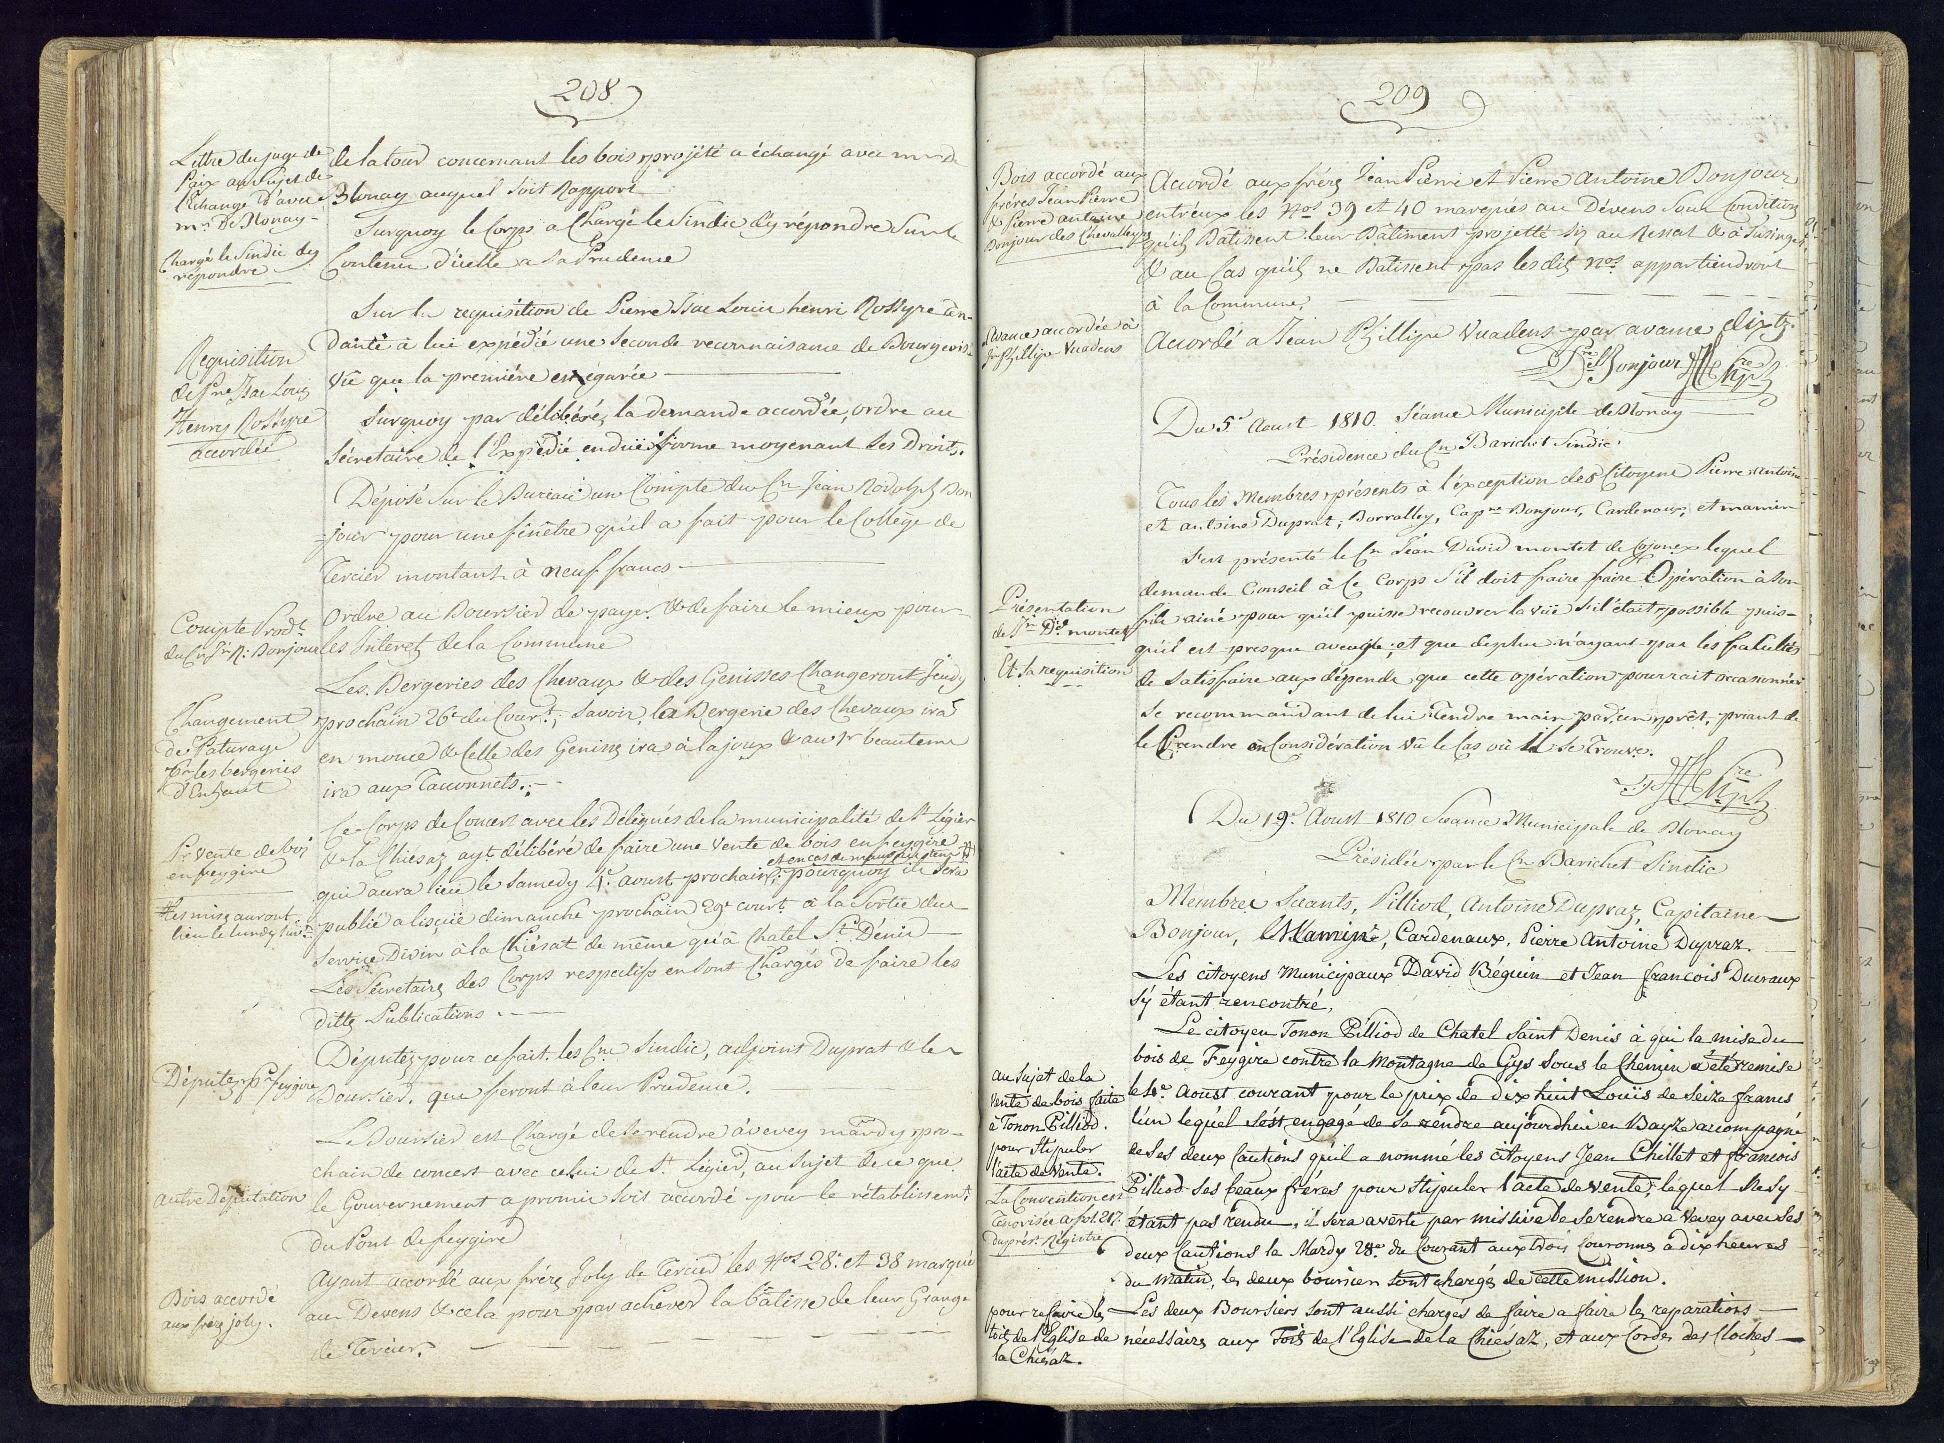 208
Lettre du juge de
Paix au Sujet de
l'Echange d'avec
mr. De Blonay
Chargé le Sindic dy
répondre
de latour concernant les bois projété a échangé avec mr de
Blonay auquel Soit Rapport
Surquoy le Corps a Chargé le Sindic d'y répondre Sur le
Contenu d'icelle a Sa Prudence
Requisition
de Pre Isac Louis
Henry Rossyre
accordée
Sur la requisition de Pierre Isac Louis henri Rossyre ten-
dante à lui expédié une Seconde reconnaisance de Bourgeoisie
Vû que la première est égarée
Surquoy par délibéré, la demande accordée, ordre au
Sécretaire de l'Expédié en düe forme moyenant Ses Droits.
Déposé Sur le Bureau un Compte du Cn Jean Rodolph Bon
=jour pour une finêtre qu'il a fait pour le Collège de
Tercier montant à neuf francs
Compte Prodt.
du Cn Jn R: Bonjour
Ordre au Boursier de payer & de faire le mieux pour
les Interet de la Commune
Changement
de Paturage
Pr les bergeries
d'Enhaut
Les Bergeries des Chevaux & des Genisses Changeront Jeudy
prochain 26e du Court; Savoir, la Bergerie des Chevaux ira
en mouce & Celle des Geniss ira à la joux & au 1r beautems
ira aux Tacconnets.
Pr Vente de bois
en feygire
# les mises auront
lieu le lundy Suivt.
Ce Corps de Concert avec les Délégués de la municipalité de St Légier
& la Chiesaz ayt. délibéré de faire une Vente de bois en feygire
et en cas de mauvais tems #
qui aura lieu le Samedy 4e. aoust prochain; pourquoy il Sera
publié a lissüe dimanche prochain 29e court. à la Sortie du
Service Divin à la Chiésat de même qu'à Chatel St Dénis
Les Sécretaires des Corps respectifs en Sont Chargés de faire les
dittes Publications.
Députez pr feygire
Députez pour ce fait. les Cns Sindic, adjoint Duprat & le
Boursier. que feront à leur Prudence.
Autre Députation
Le Boursier est Chargé de Se rendre à vevey mardy pro-
chain de concert avec celui de St. Légier, au Sujet de ce que
le Gouvernement a promis Soit accordé pour le rétablissemt.
du Pont de feygire
Bois accordé
aux frères joly.
Ayant accordé aux frères Joly de Tercier les Nos 28. et 38 marqué
au Devens & cela pour par achever la bâtisse de leur Grange
de Tercier.
209
Bois accordé aux
frères Jean Pierre
& Pierre antoine
Bonjour des Chevalleyres
Accordé aux frères Jean Pierre et Pierre Antoine Bonjour
entréux les Nos 39 et 40 marqués au Dévens Sous Condition
qu'ils Bâtissent leur Bâtiment projetté
& au Cas qu'ils ne Batissent pas les dits Nos. appartiendront
à la Commune.
Avance accordée à
Jn Phillipe Vuadens
Accordé à Jean Phillipe Vuadens par avance dix
Bonjour
Du 5e Aoust 1810. Séance Municiple de Blonay
Présidence du Cn Barichet Sindic
Tous les Membres présents à l'exception des Citoyens Pierre antoine
et antoine Duprat, Borralley, Capne Bonjour, Cardenoux, et mamin
Présentation
de Jn Dd montet
Et Sa requisition
S'est présenté le Cn Jean David montet de Cojonex lequel
demande Conseil à Ce Corps S'il doit faire faire Opération à Son
fils ainé pour qu'il puisse recouvrer la vüe S'il était possible puis-
qu'il est presque aveugle; et que deplus n'ayant pas les facultés
de Satisfaire aux dépends que cette opération pourrait occasionner
Se recommandant de lui tendre main par un prêt, priant de
le Prendre en Considération vu le Cas où il Se Trouve.
Du 19e Aoust 1810 Seance Municipale de Blonay
Présidée par le Cn Barichet Sindic
Membres Séants, Pilliod, Antoine Dupraz, Capitaine
Bonjour, Mamin, Cardenaux, Pierre Antoine Dupraz.
Les citoyens Municipaux David Béguin et Jean françois Ducraux
s'y étant rencontré,
au Sujet de la
vente de bois faite
à Tonon Pilliod.
pour Stipuler
l'acte de vente.
La Convention est
Tenorisée a fol. 217.
du prést. Régistre
Le citoyen Tonon Pilliod de Chatel Saint Denis à qui la mise du
bois de Feygire contre la Montagne de Gys Sous le Chemin a été remise
le 4e. Aoust courant pour le prix de dix huit Louïs de Seize francs
l'un lequel s'est engagé de Se rendre aujourdhui en Bayze accompagné
de Ses deux Cautions qu'il a nommé les citoyens Jean Chillet et francois
Pilliod Ses beaux frères pour Stipuler l'acte de vente; lequel Ne S'y
étant pas rendu, il sera averti par missive de Se rendre à Vevey avec Ses
deux Cautions le Mardy 28e. du Courant aux trois Couronnes à dix heures
du matin, les deux boursiers Sont chargés de cette mission.
pour refaire les
toits de l'Eglise de
la Chiésaz.
Les deux Boursiers sont aussi chargés de faire a faire les reparations
nécessaires aux Toits de l'Eglise de la Chiésaz, et aux Cordes des Cloches